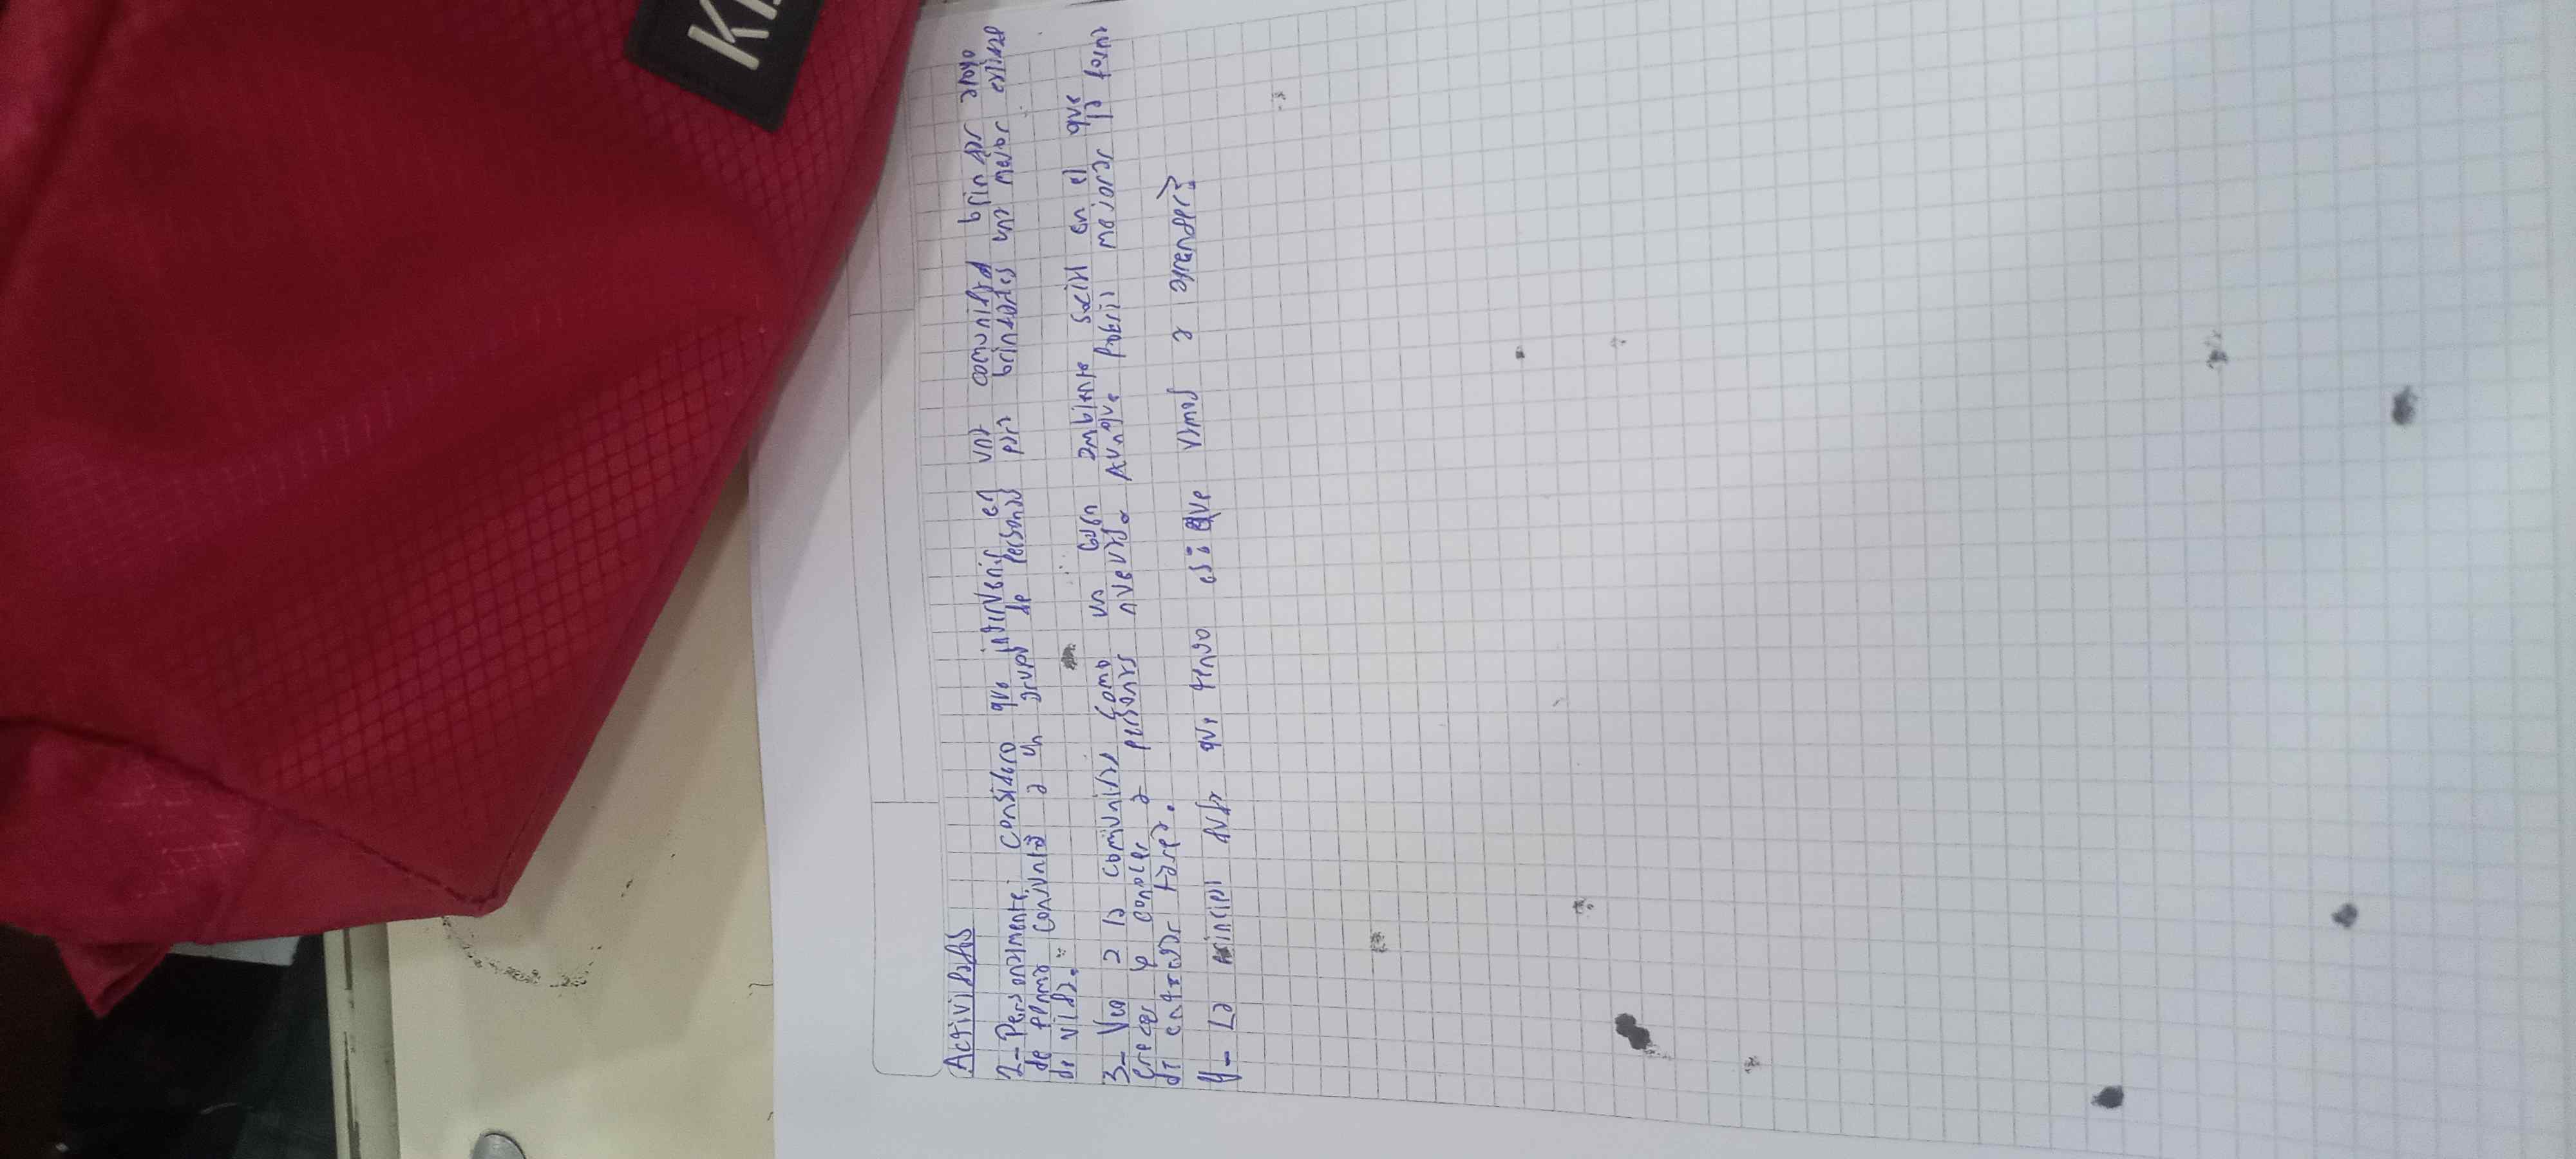 KI
Actividades
2- Personalmente, considero que intervenir en una comunidad brindar apoyo
de forma comunitaria a un grupo de personas para brindarles una mejor calidad
de vida.
3- Veo a la comunidad como un buen ambiente social en el que
crecer y conocer a personas nuevas. Aunque podría mejorar la forma
de entregar tarea.
4- La principal duda que tengo es: ¿Que vamos a aprender?